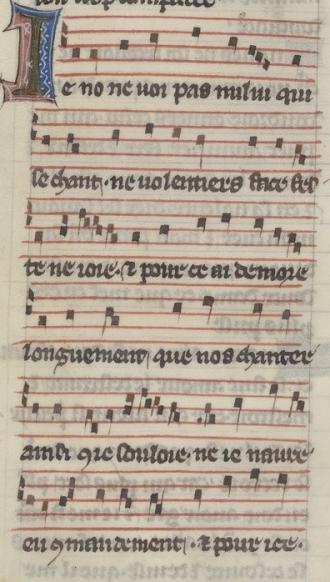 Je no ne voi pas nului qui
le chant. ne volentiers face fes
te ne ioie. & pour ce ai demore
longuement que nos chantee
ainsi 9 ie souloie. ne ie nauve
eu 9mandement. & pour ice.